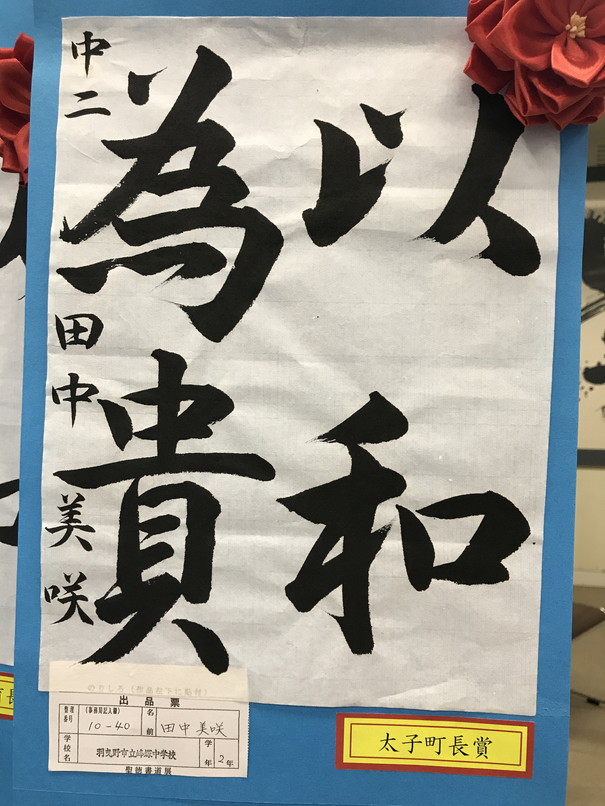 以和
為貴
中二 田中美咲
のりしろ(作品右下に貼付)
出品票
整理番号 (事務局記入欄) 10-40 名前 田中美咲
学校名 羽曳野市立峰塚中学校 学年 2年
聖徳書道展
太子町長賞
長